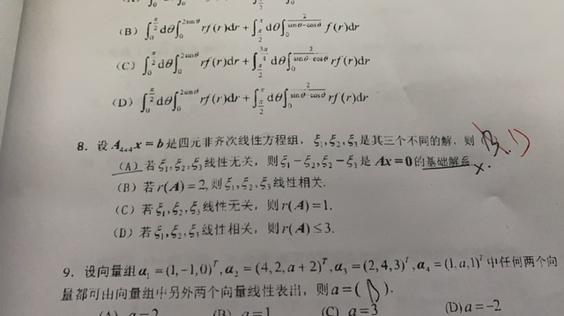 (B) ∫₀^{π/2} dθ ∫₀^{2sinθ} rf(r)dr + ∫_{π/2}^{π} dθ ∫₀^{2/(sinθ-cosθ)} f(r)dr
(C) ∫₀^{π/2} dθ ∫₀^{2sinθ} rf(r)dr + ∫_{π/2}^{3π/4} dθ ∫₀^{2/(sinθ-cosθ)} rf(r)dr
(D) ∫₀^{π/2} dθ ∫₀^{2sinθ} rf(r)dr + ∫_{π/2}^{π} dθ ∫₀^{2/(sinθ-cosθ)} rf(r)dr
8. 设 A₄ₓ₄x = b 是四元非齐次线性方程组，ξ₁,ξ₂,ξ₃ 是其三个不同的解，则
(A) 若 ξ₁,ξ₂,ξ₃ 线性无关，则 ξ₁-ξ₂,ξ₂-ξ₃ 是 Ax = 0 的基础解系 ×.
(B) 若 r(A) = 2, 则 ξ₁,ξ₂,ξ₃ 线性相关.
(C) 若 ξ₁,ξ₂,ξ₃ 线性无关，则 r(A) = 1.
(D) 若 ξ₁,ξ₂,ξ₃ 线性相关，则 r(A) ≤ 3.
9. 设向量组 α₁ = (1,-1,0)ᵀ, α₂ = (4,2,a+2)ᵀ, α₃ = (2,4,3)ᵀ, α₄ = (1,a,1)ᵀ 中任何两个向
量都可由向量组中另外两个向量线性表出，则 a = ( ).
(A) a=2 (B) a=1 (C) a=3 (D) a=-2